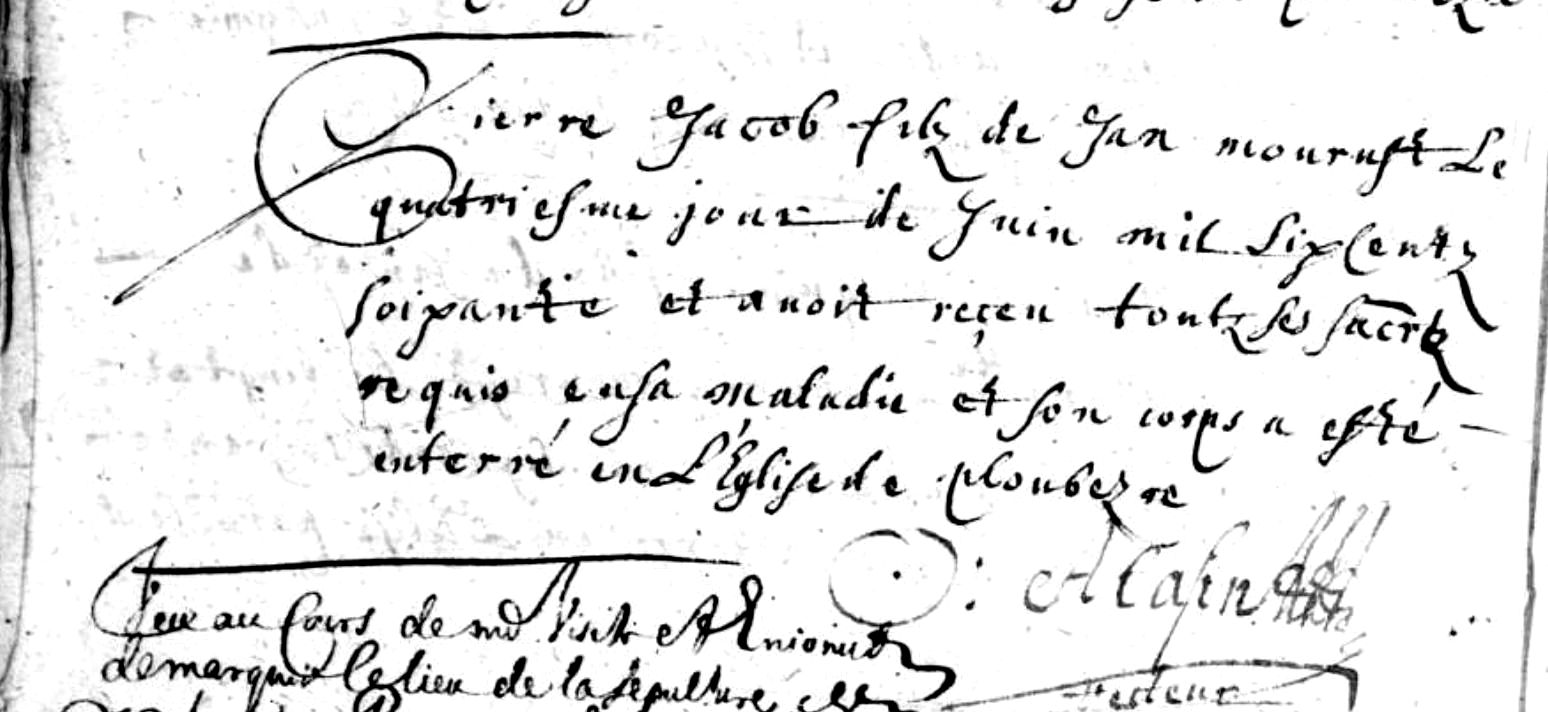 Pierre Jacob filz de Jan mourust Le
quatriesme jour de Juin mil Six Centz
soixante et avoit reçeu toutz ses sacrtz
requis en sa maladie et son corps a esté
enterré en L'Eglise de Ploubezre
Veu au Cours de visite et Enioinct
de marquer le lieu de la sepulture
Recteur